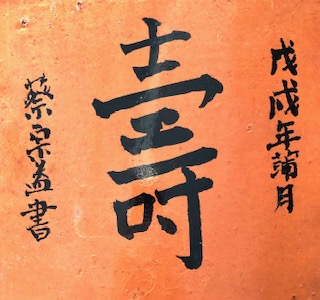 戊戌年蒲月
壽
蔡宗益書